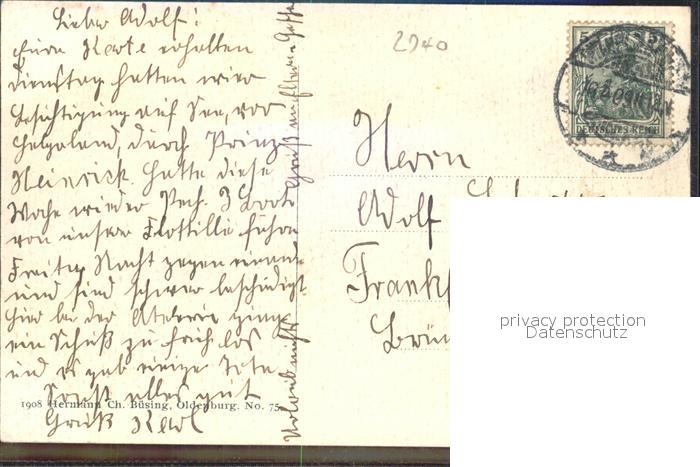 Lieber Adolf!
Eure Karte erhalten
Dienstag hatten wir
Besichtigung auf See, vor
Helgoland, durch Prinz
Heinrich. Hatte diese
Woche wieder Pech. 3 Boote
von unserer Flottille fuhren
Freitag Nacht gegen
und sind schwer beschädigt.
Hier bei der Artillerie ging
ein Schuß zu früh los
und es gab einige Tote
Sonst alles gut
Gruß Karl
1908 Hermann Ch. Büsing, Oldenburg. No. 75
Gruß an
Urlaub nicht
2940
DEUTSCHES REICH
Herrn
Adolf
Frankf
Brü
privacy protection
Datenschutz